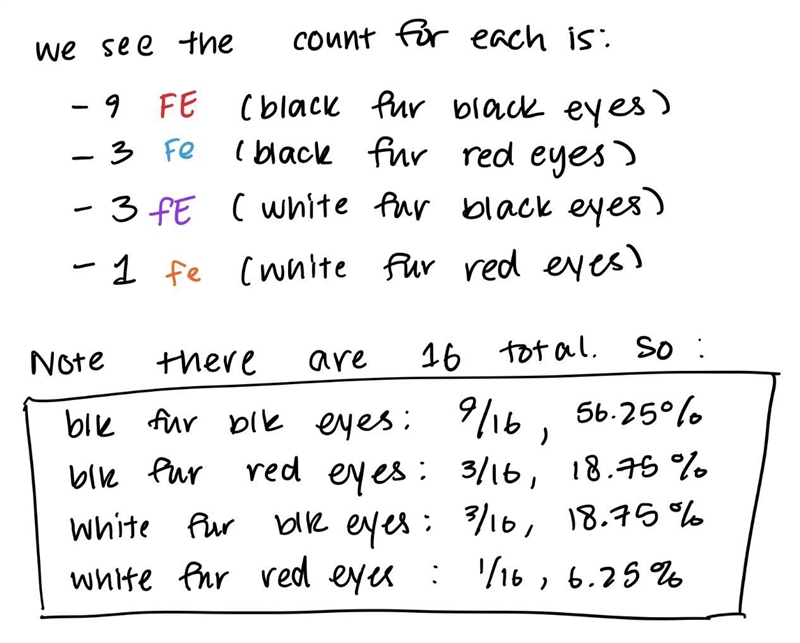 we see the count for each is:
- 9 FE (black fur black eyes)
- 3 Fe (black fur red eyes)
- 3 fE (white fur black eyes)
- 1 fe (white fur red eyes)
Note there are 16 total. So:
blk fur blk eyes: 9/16, 56.25%
blk fur red eyes: 3/16, 18.75%
White fur blk eyes: 3/16, 18.75%
white fur red eyes: 1/16, 6.25%